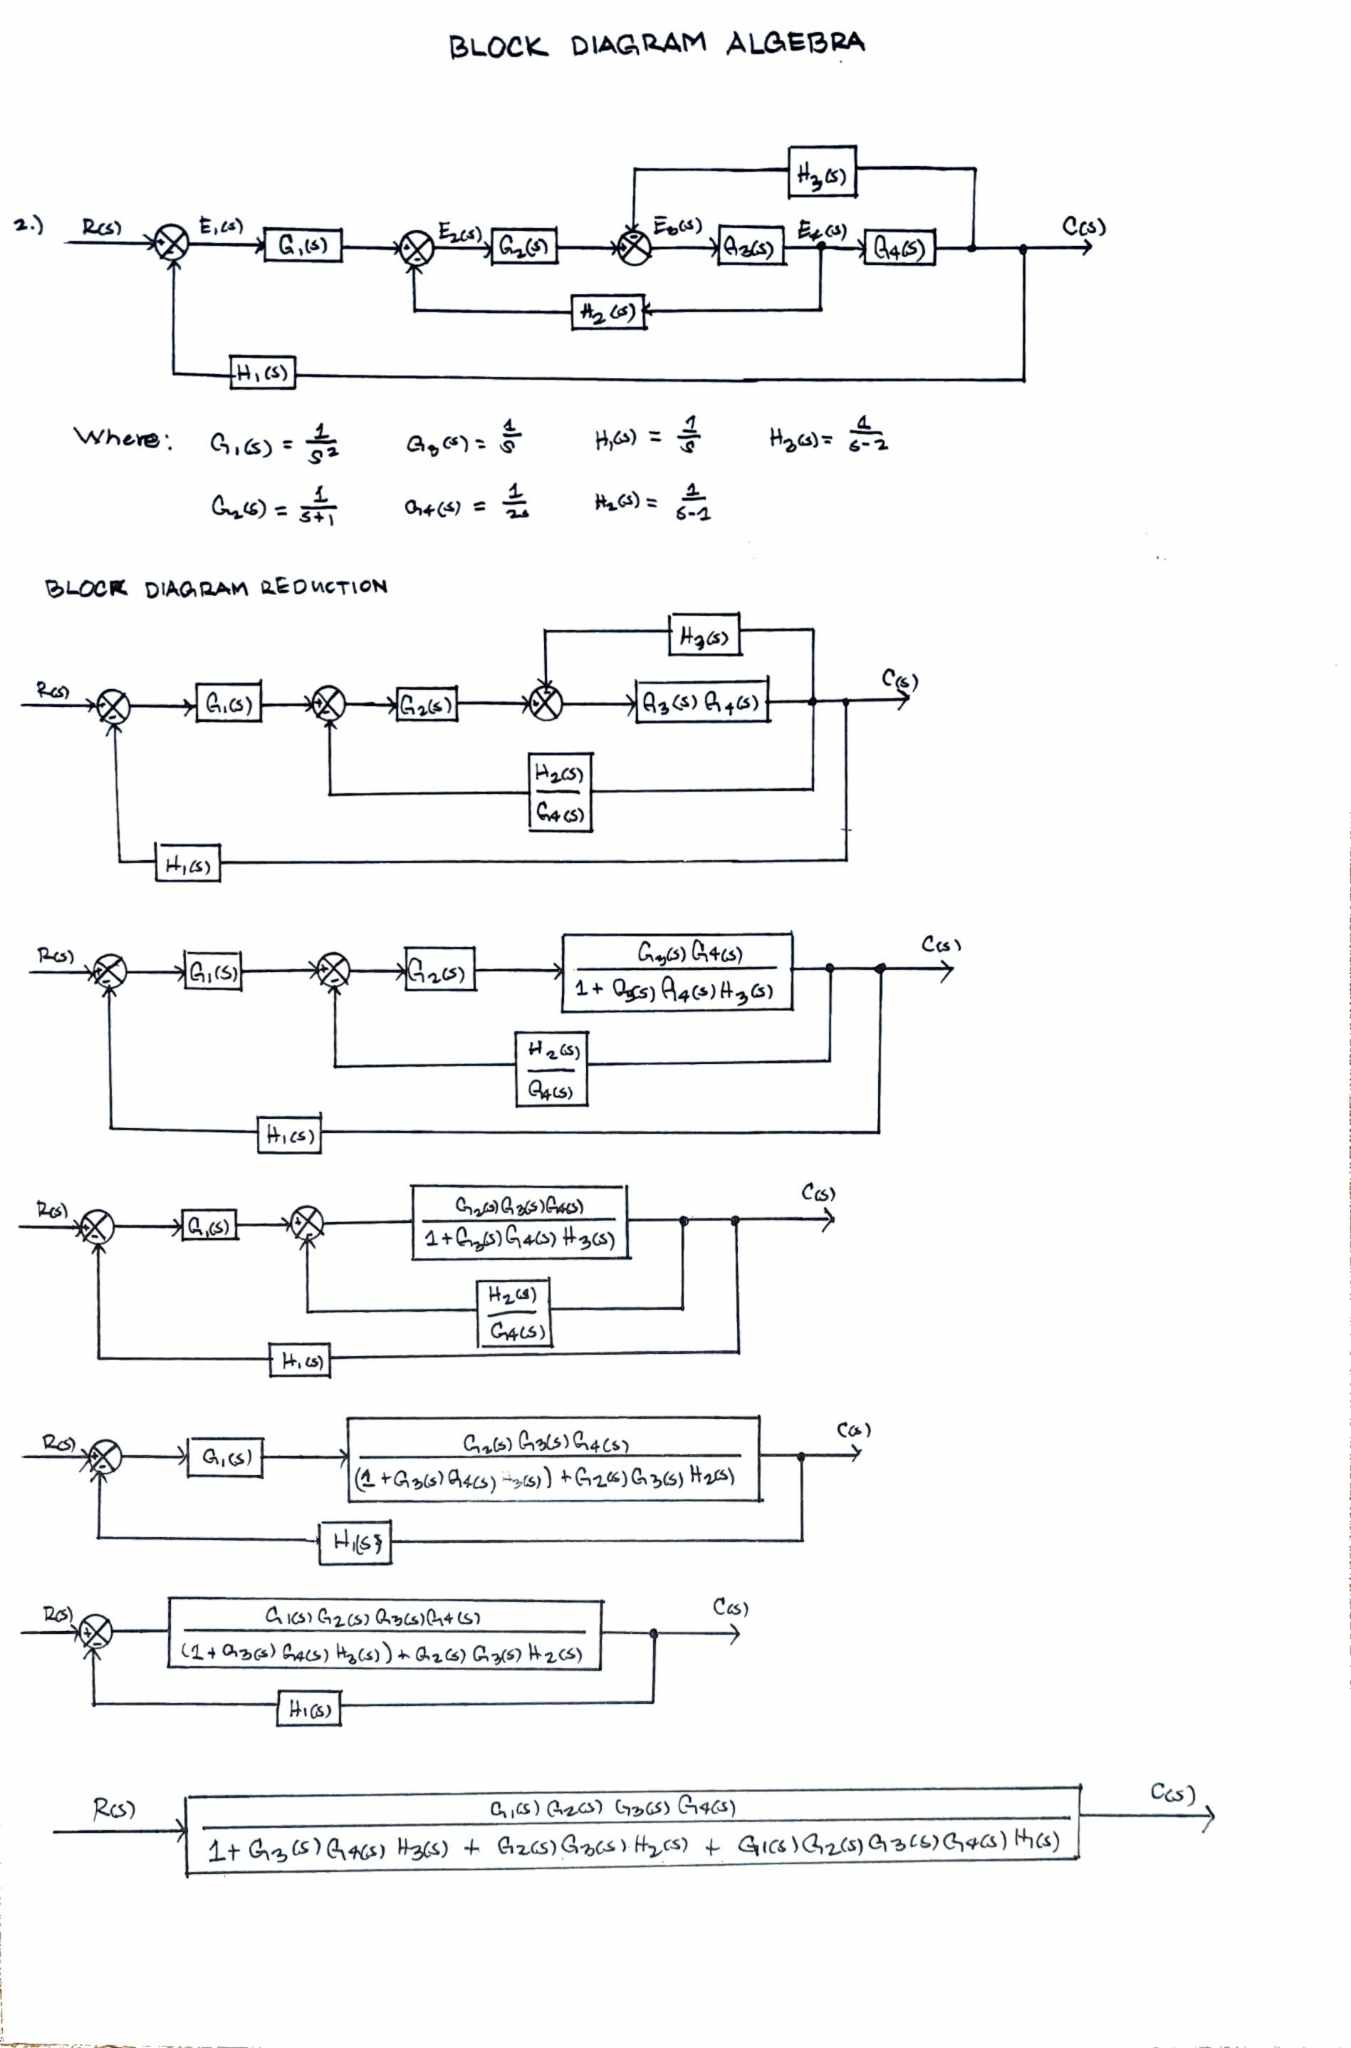 BLOCK DIAGRAM ALGEBRA
H3(s)
2.) R(s) + - E1(s) G1(s) + - E2(s) G2(s) + - E3(s) G3(s) E4(s) G4(s) C(s)
H2(s)
H1(s)
Where: G1(s) = 1/s² G3(s) = 1/s H1(s) = 1/s H3(s) = 1/s-2
G2(s) = 1/s+1 G4(s) = 1/2s H2(s) = 1/s-1
BLOCK DIAGRAM REDUCTION
H3(s)
R(s) + - G1(s) + - G2(s) + - G3(s) G4(s) C(s)
H2(s)
G4(s)
H1(s)
R(s) + - G1(s) + - G2(s) G3(s) G4(s) C(s)
1 + G3(s) G4(s) H3(s)
H2(s)
G4(s)
H1(s)
R(s) + - G1(s) + - G2(s) G3(s) G4(s) C(s)
1 + G3(s) G4(s) H3(s)
H2(s)
G4(s)
H1(s)
R(s) + - G1(s) G2(s) G3(s) G4(s) C(s)
(1 + G3(s) G4(s) H3(s)) + G2(s) G3(s) H2(s)
H1(s)
R(s) + - G1(s) G2(s) G3(s) G4(s) C(s)
(1 + G3(s) G4(s) H3(s)) + G2(s) G3(s) H2(s)
H1(s)
R(s) G1(s) G2(s) G3(s) G4(s) C(s)
1 + G3(s) G4(s) H3(s) + G2(s) G3(s) H2(s) + G1(s) G2(s) G3(s) G4(s) H1(s)